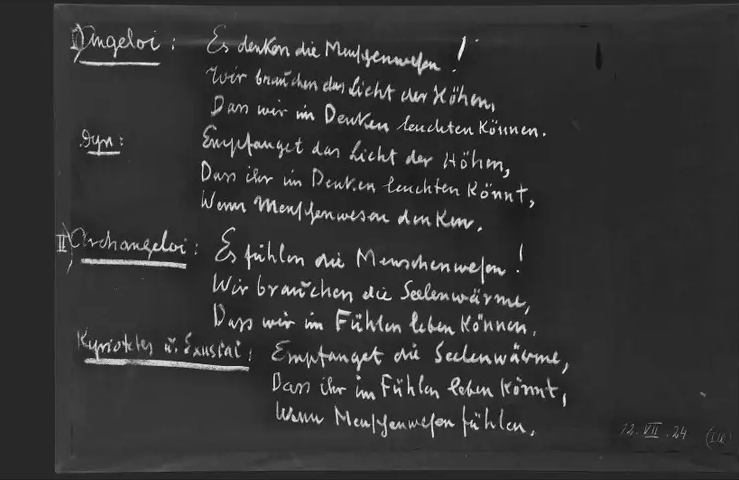 I) Angeloi : Es denken die Menschenwesen !
Wir brauchen das Licht der Höhen,
Dass wir im Denken leuchten können.
Dyn : Empfanget das Licht der Höhen,
Dass ihr im Denken leuchten könnt,
Wenn Menschenwesen denken.
II) Archangeloi : Es fühlen die Menschenwesen !
Wir brauchen die Seelenwärme,
Dass wir im Fühlen leben können.
Kyriotetes u. Exusiai : Empfanget die Seelenwärme,
Dass ihr im Fühlen leben könnt,
Wenn Menschenwesen fühlen.
12. VII. 24